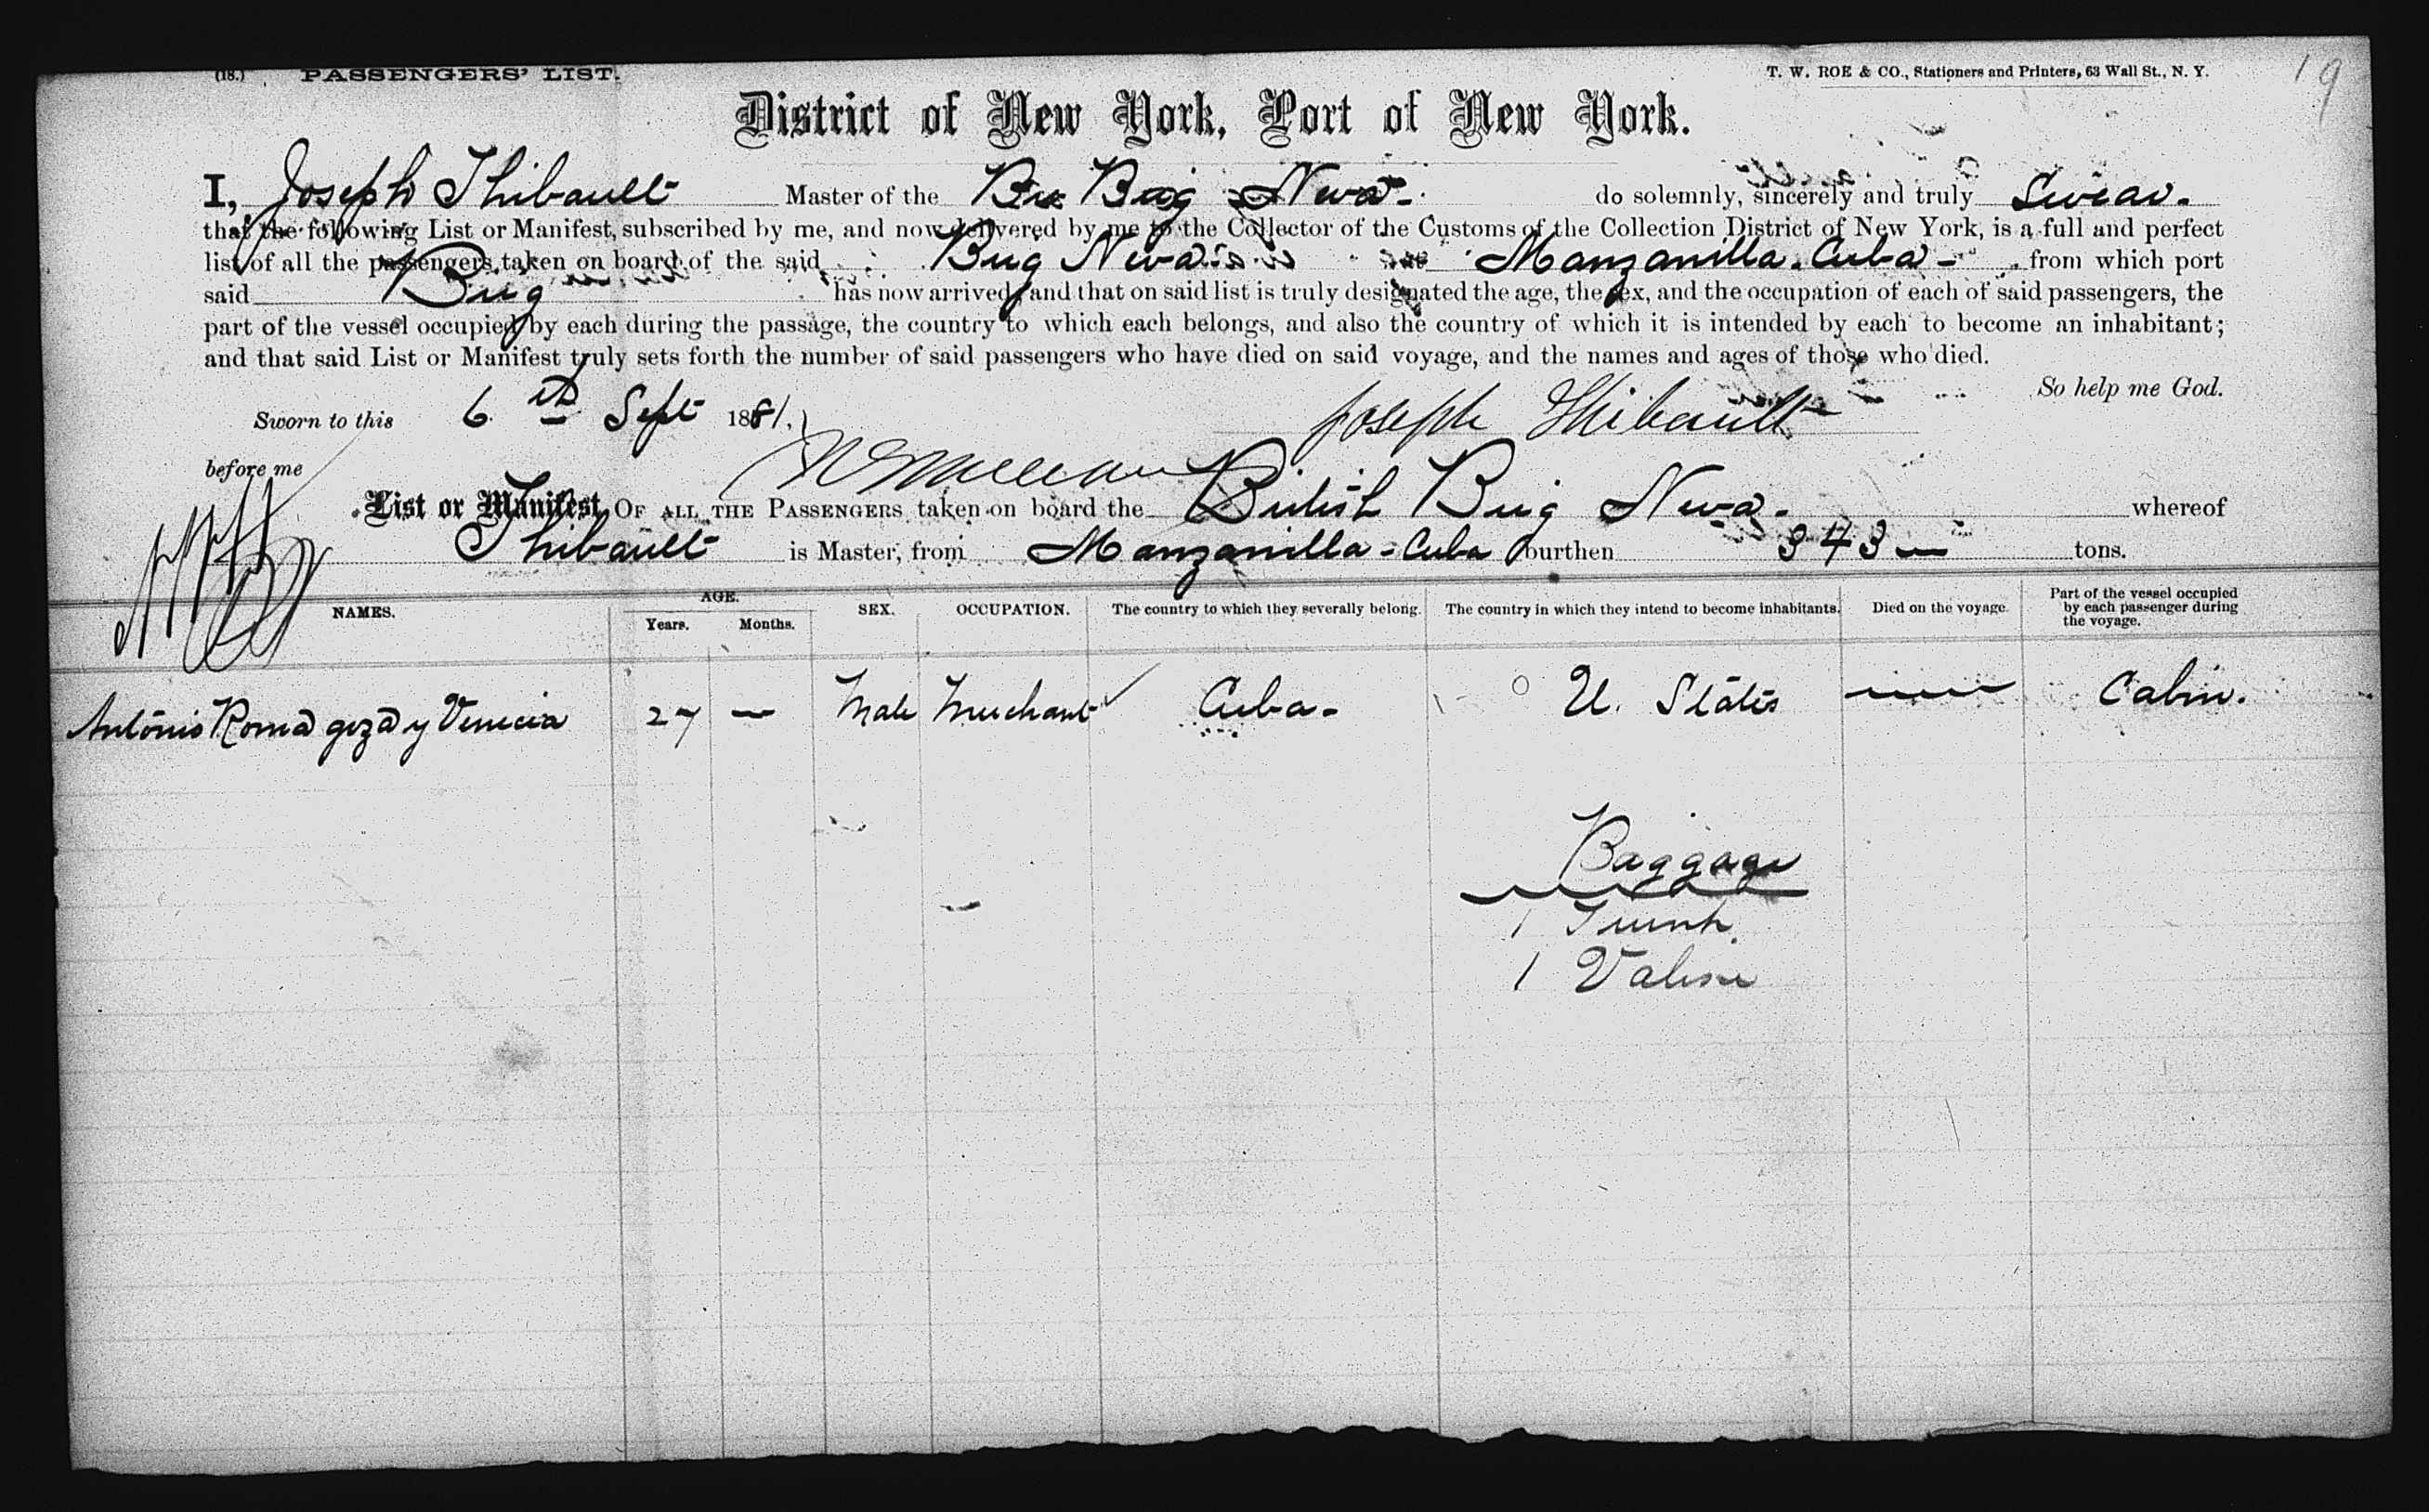 (18.) PASSENGERS' LIST. T. W. ROE & CO., Stationers and Printers, 63 Wall St., N. Y. 19
District of New York, Port of New York.
I, Joseph Thibault Master of the Br Brig Neva- do solemnly, sincerely and truly Swear.
that the following List or Manifest, subscribed by me, and now delivered by me to the Collector of the Customs of the Collection District of New York, is a full and perfect
list of all the passengers taken on board of the said Brig Neva at Manzanilla. Cuba- from which port
said Brig has now arrived, and that on said list is truly designated the age, the sex, and the occupation of each of said passengers, the
part of the vessel occupied by each during the passage, the country to which each belongs, and also the country of which it is intended by each to become an inhabitant;
and that said List or Manifest truly sets forth the number of said passengers who have died on said voyage, and the names and ages of those who died.
So help me God.
Sworn to this 6th Sept 1881. Joseph Thibault
before me
List or Manifest OF ALL THE PASSENGERS taken on board the British Brig Neva- whereof
Thibault is Master, from Manzanilla - Cuba burthen 343 — tons.
NAMES. AGE. Years. Months. SEX. OCCUPATION. The country to which they severally belong. The country in which they intend to become inhabitants. Died on the voyage. Part of the vessel occupied by each passenger during the voyage.
Antonio Romagoza y Venecia 27 — Male Merchant Cuba- U. States — Cabin.
Baggage
1 Trunk
1 Valise